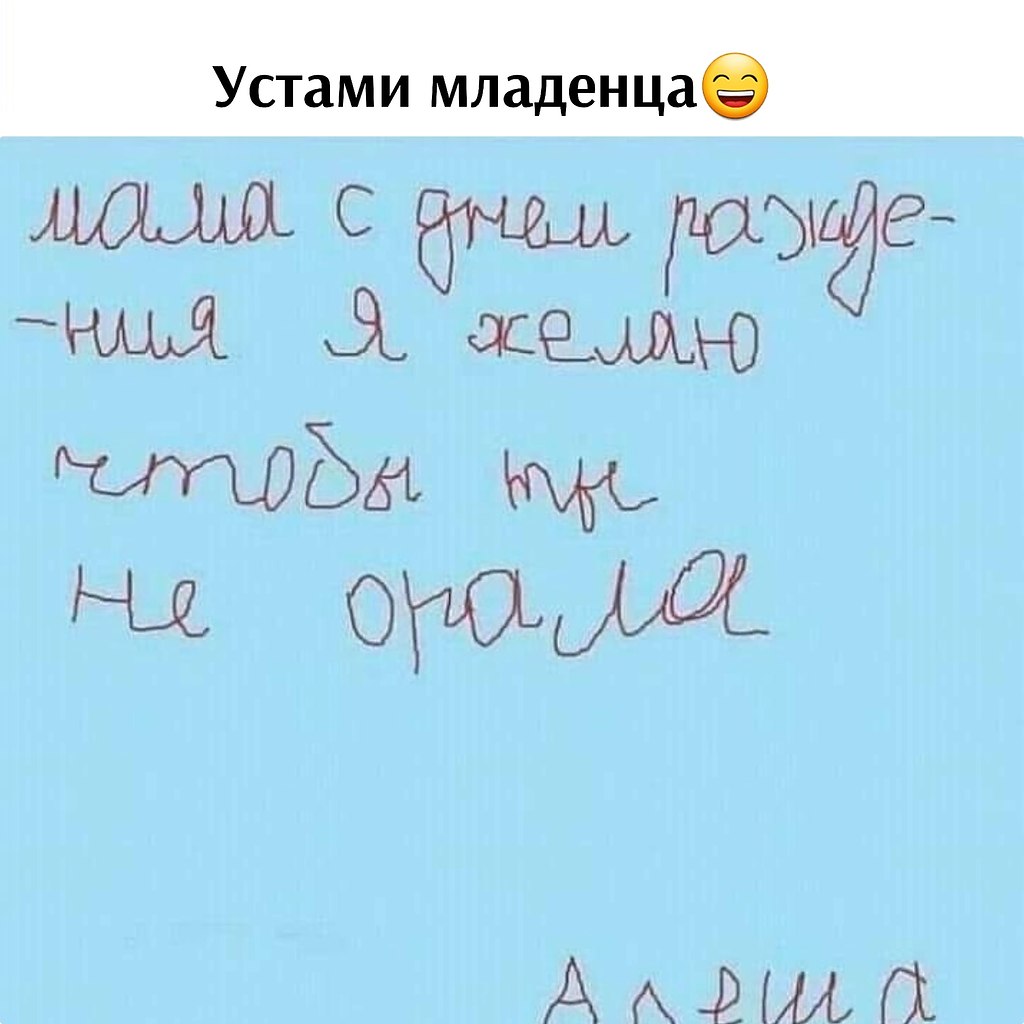 Устами младенца😄
мама с днем ражде-
-ния я желаю
чтобы ты
не орала
Алеша